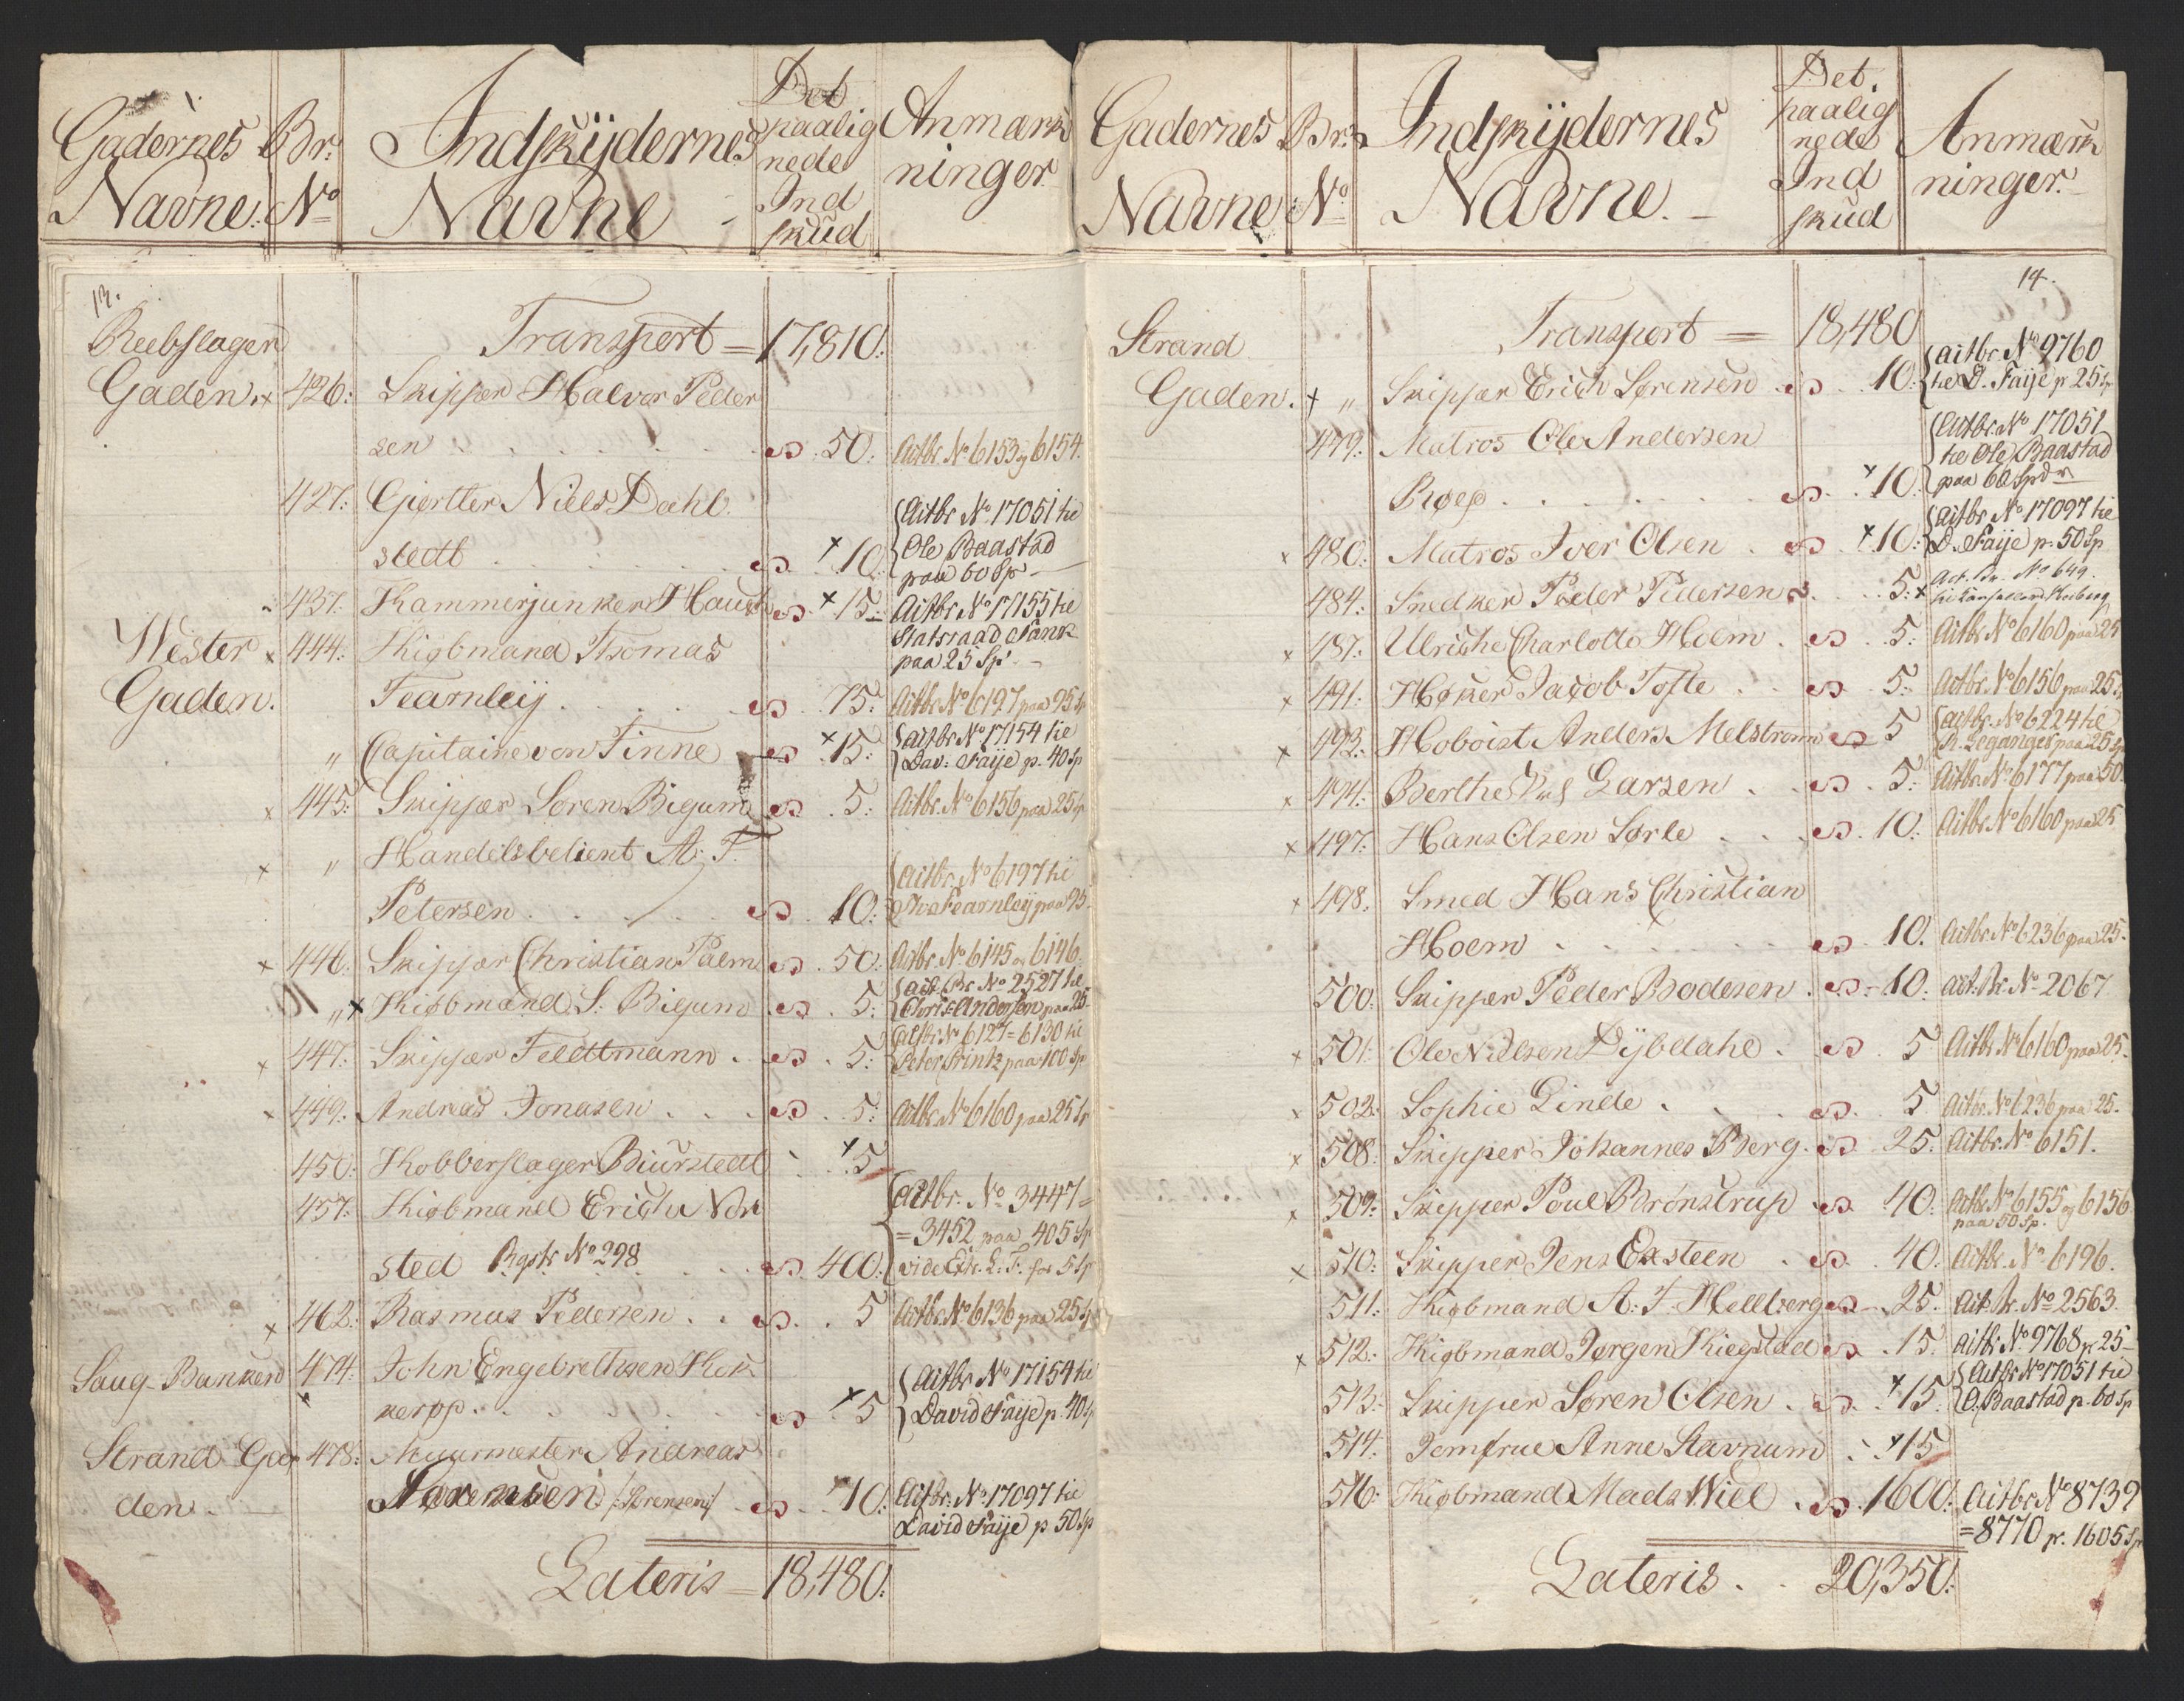 Gadernes Navne.
Br: No
Indskÿdernes Navne
Det paalig nede Ind skud
Anmærk ninger.
13.
Transport = 17,810.
Reebslager
Gaden. x 426: Skipper Halvor Peder
sen . . . 50. Actbr. No 6153 og 6154.
427: Giørtler Niels Dahl
stedt . . x 10. Actbr No 17051 tie Ole Baastad paa 60 Sp
437. Kammerjunker Hauch x 15 Actbr No 17155 tie Statsraad Tank paa 25 Sp
Wester x 444. Kiøbmand Thomas
Gaden. Fearnleÿ . . . 75. Actbr No 6197 paa 95 Sp
„ Capitaine von Finne x 15. Actbr No 17154 tie Dav: Faÿe p. 40 Sp
x 445. Skipper Søren Bigum 5. Actbr. No 6156 paa 25 Sp
x „ Handelsbetient A: F.
Petersen . . . 10. Actbr. No 6197 ti Ths Fearnleÿ paa 95
x 446. Skipper Christian Palm 50. Actbr. No 6145 og 6146.
„ x Kiøbmand S. Bigum 5. Act. Br. No 2527 tie Chris: Andersen paa 25
x 447. Skipper Feldtmann . 5. Actbr No 6127 = 6130 ti Peter Printz paa 100 Sp
x 449. Andreas Jonasen . . 5. Actbr No 6160 paa 25 Sp
450: Kobberslager Biurstedt x 5
457: Kiøbmand Erich Nor
sted Rgstr No 298 400. Actbr. No 3447 = = 3452 paa 405 Sp vide Extr. L. F. for 5 Sp
x 462: Rasmus Pedersen . . 5 Actbr. No 6136 paa 25 Sp
Saug-Banken 474. John Engebrethsen Kok
kerop . . . x 5 Actbr No 17154 ti David Faÿe p. 40 Sp
Strand Ga 478: Muurmester Andreas
den. Sørensen /Sørensen/ 10. Actbr. No 17097 tie David Faÿe p 50 Sp
Lateris = 18,480.
Gadernes Navne
Br: No
Indskÿdernes Navne.
Det paalig nede Ind skud
Anmærk ninger.
14.
Transport = 18,480
Strand
Gaden. x „ Skipper Erich Sørensen 10. Actbr. No 9760 tie D. Faÿe p 25 Sp
479. Matros Ole Andersen
Røes . . . x 10. Actbr. No 17051 tie Ole Baastad paa 60 Spdr
x 480. Matros Iver Olsen . x 10: Actbr No 17097 tie D. Faÿe p. 50 Sp
484. Snedker Peder Pedersen 5. x Act. Br. No 649.
x 487. Ulriche Charlotte Hoem . 5. Actbr No 6160 paa 25
x 491. Høker Jacob Tofte . . 5. Actbr. No 6156 paa 25 Sp
x 493. Hoboist Anders Melstrøm 5 Actbr. No 6224 tie R. Leganger paa 25 Sp
x 494. Berthe Larsen . . 5. Actbr. No 6177 paa 50
x 497. Hans Olsen Sørle . . 10. Actbr No 6160 paa 25
x 498. Smed Hans Christian
Hoem . . . 10. Actbr No 6236 paa 25.
500. Skipper Peder Bodesen . 10. act. Br. No 2067
x 501. Ole Nielsen Dÿbdahl . 5 Actbr No 6160 paa 25.
x 502. Sophie Linde . . 5 Actbr. No 6236 paa 25.
x 508. Skipper Johannes Berg. 25. Actbr. No 6151.
x 509. Skipper Poul Brønstrup 40. Actbr No 6155 og 6156 paa 50 Sp.
x 510. Skipper Jens Exsteen . 40. Actbr. No 6196.
511. Kiøbmand A: F. Hellberg 25. Act. Br. No 2563.
x 512. Kiøbmand Jørgen Kiegstad 15. Actbr. No 9768 p 25
513. Skipper Søren Olsen . x 15. Actbr No 17051 tie O. Baastad p. 60 Sp
514. Jomfrue Anne Stavnum . x 15
516. Kiøbmand Mads Wiel . 1600. Actbr No 8739 = 8770 p. 1605 Sp
Lateris . . 20,350.